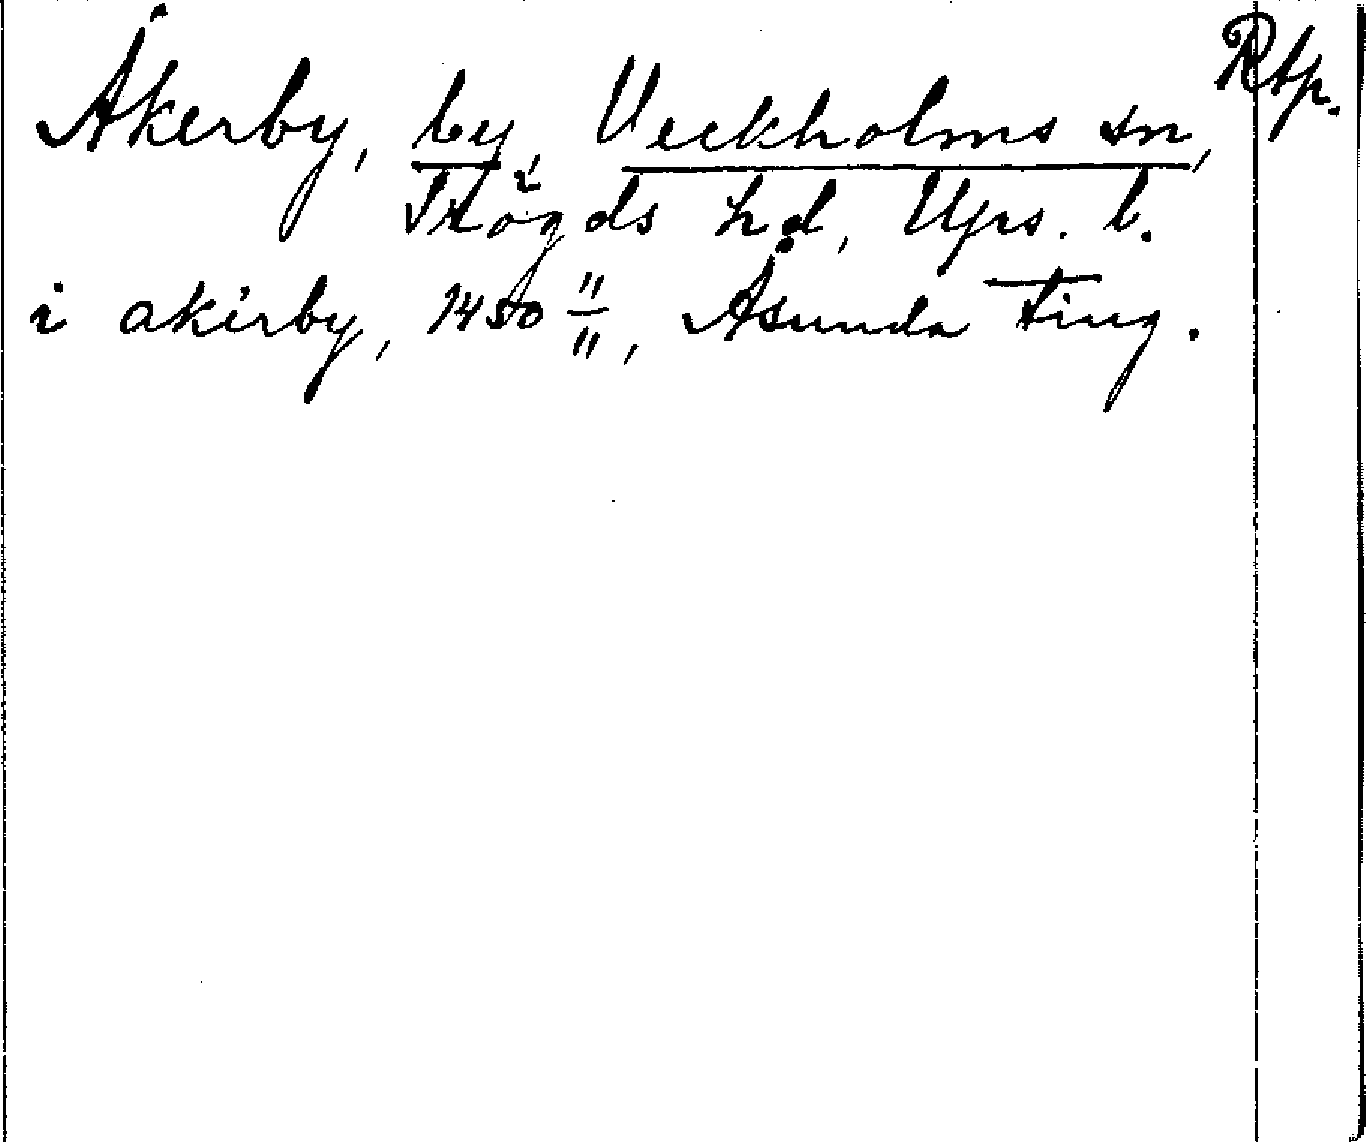 Åkerby, by, Veckholms sn, Rtp.
Trögds hd, Ups. l.
i akirby, 1450 11/11, Åsunda ting.